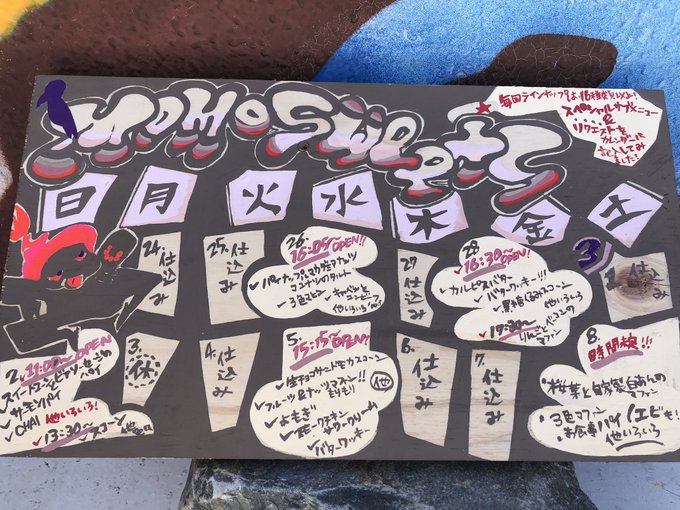 MOMO SWEETS
毎回ラインナップは
スペシャルナメニュー
&
リクエストを
カレンダーに
記入してみ
ました!
日 月 火 水 木 金 土
24. 仕込み
25. 仕込み
26. 15:05 OPEN!!
パイナップルマカダミアナッツ
ココナッツのタルト
3色
他いろいろ
27 仕込み
28. 16:30~ OPEN!
カルピスバター
バタークッキー!!!
黒糖くるみスコーン
他いろいろ
17:30~
りんごとベーコンの
マフィン
3
1. 仕込み
2. 11:00~ OPEN
サーモンパイ
CHAI 他いろいろ!
13:30~ スコーン
3. 休
4. 仕込み
5. 15:15~ OPEN!
フルーツ&ナッツ
もりもり
他
よもぎ
スモークチキン
サワークリーム
バタークッキー
6. 仕込み
7. 仕込み
8. 時間検!!!
桜葉と自家製白あんの
マフィン
3色マフィン
お食事パイ/エビも!
他いろいろ